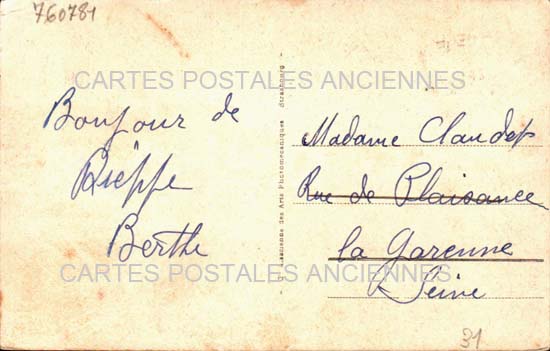 760781
CARTES POSTALES ANCIENNES
Bonjour de
Dieppe
Berthe
des Arts Photomécaniques Strasbourg
Madame
Rue de Plaisance
la Garenne
Seine
CARTES POSTALES ANCIENNES
31